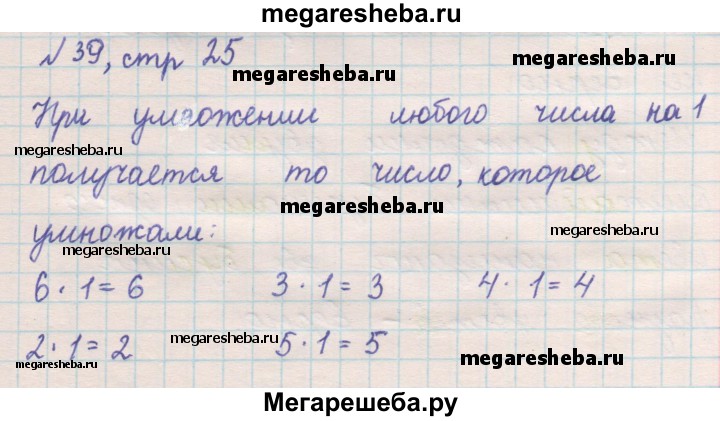 megaresheba.ru
№ 39, стр 25
megaresheba.ru
При умножении любого числа на 1
megaresheba.ru
получается то число, которое
megaresheba.ru
умножали:
megaresheba.ru
megaresheba.ru
6 · 1 = 6 3 · 1 = 3 4 · 1 = 4
megaresheba.ru
2 · 1 = 2 5 · 1 = 5
megaresheba.ru
megaresheba.ru
Мегарешеба.ру